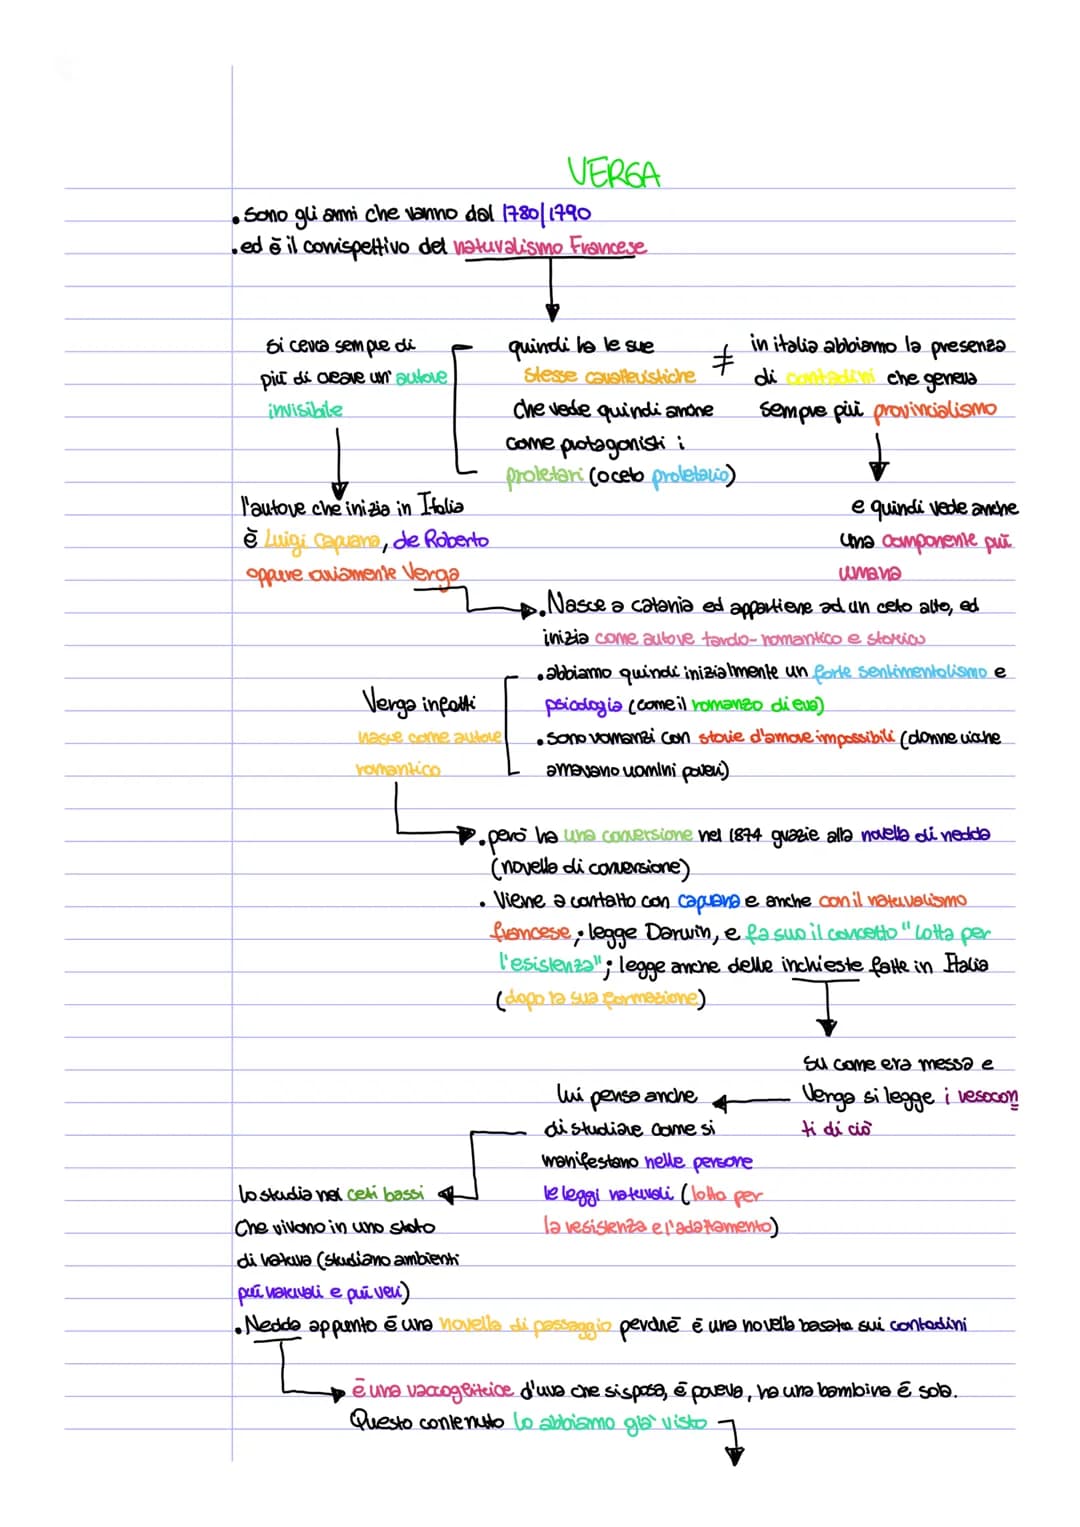 VERGA
• Sono gli anni che vanno dal 1780/1790
• ed è il corrispettivo del naturalismo Francese
Si cerca sempre di
più di creare un' autore
invisibile
quindi ha le sue
stesse caratteristiche
che vede quindi anche
come protagonisti i
proletari (oceto proletario)
≠
in italia abbiamo la presenza
di contadini che genera
sempre più provincialismo
e quindi vede anche
una componente più
umana
l'autore che inizia in Italia
è Luigi Capuana, de Roberto
oppure ovviamente Verga
• Nasce a catania ed appartiene ad un ceto alto, ed
inizia come autore tardo-romantico e storico
• abbiamo quindi inizialmente un forte sentimentalismo e
psicologia (come il romanzo di eva)
• sono romanzi con storie d'amore impossibili (donne ricche
amavano uomini poveri)
Verga infatti
nasce come autore
romantico
• però ha una conversione nel 1874 grazie alla novella di nedda
(novella di conversione)
• Viene a contatto con capuana e anche con il naturalismo
francese; legge Darwin, e fa suo il concetto "lotta per
l'esistenza"; legge anche delle inchieste fatte in Italia
(dopo la sua formazione)
su come era messa e
Verga si legge i resocon
ti di ciò
lui pensa anche
di studiare come si
manifestano nelle persone
le leggi naturali (lotta per
la resistenza e l'adattamento)
lo studia nei ceti bassi
che vivono in uno stato
di natura (studiano ambienti
più naturali e più veri)
• Nedda appunto è una novella di passaggio perché è una novella basata sui contadini
è una raccoglitrice d'uva che si sposa, è povera, ha una bambina è sola.
Questo contenuto lo abbiamo già visto